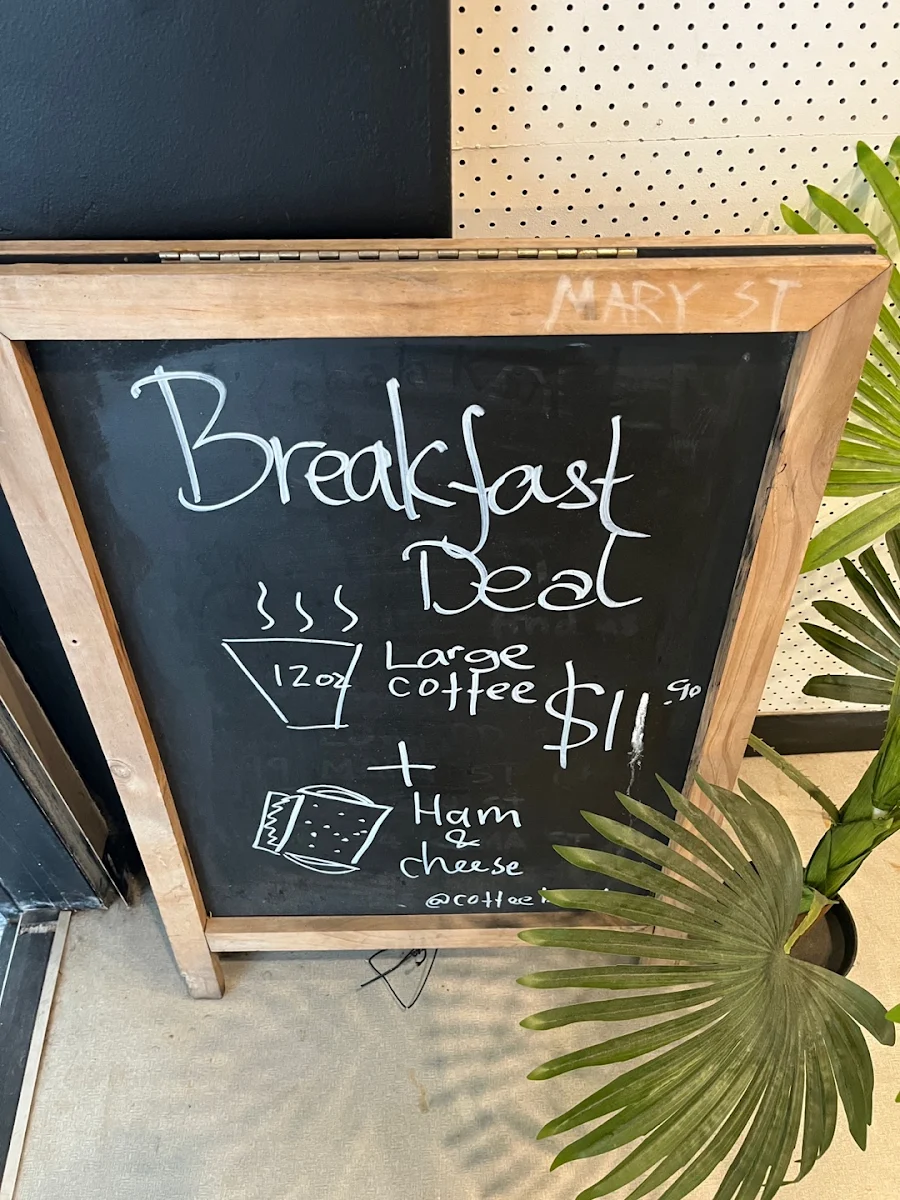 MARY ST
Breakfast
Deal
12oz
Large
coffee
$11.90
+
Ham
&
cheese